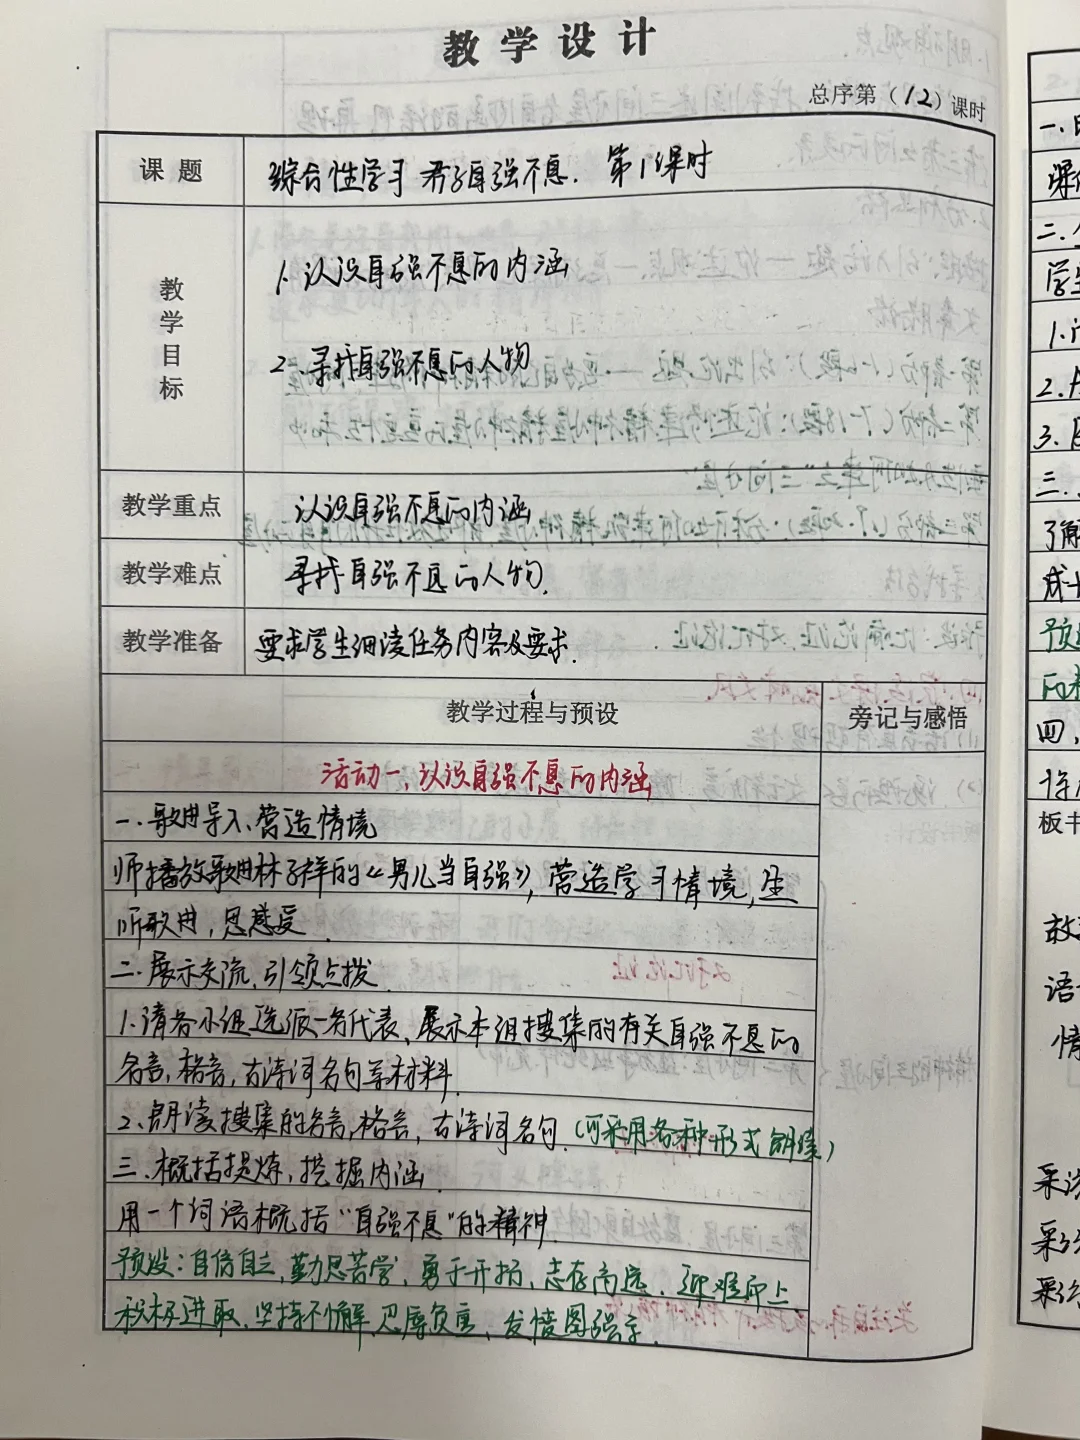 教学设计
总序第（12）课时
课题 综合性学习 君子自强不息. 第1课时
教学目标
1. 认识自强不息的内涵
2. 寻找自强不息的人物
教学重点 认识自强不息的内涵
教学难点 寻找自强不息的人物.
教学准备 要求学生细读任务内容及要求.
教学过程与预设 旁记与感悟
活动一、认识自强不息的内涵
一、歌曲导入、营造情境
师播放歌曲林子祥的《男儿当自强》，营造学习情境，生
听歌曲，思感受.
二、展示交流，引领点拨.
1. 请各小组选派一名代表、展示本组搜集的有关自强不息的
名言，格言，古诗词名句等材料
2、朗读搜集的名言，格言，古诗词名句.（可采用各种形式朗读）
三、概括提炼，挖掘内涵.
用一个词语概括“自强不息”的精神
预设：自信自立，勤思苦学、勇于开拓、志存高远、迎难而上、
积极进取、坚持不懈、忍辱负重、发愤图强等.
一.
二、
学生
1.
2.
3.
三.
了解
成长
预设
四、
板书
语
情
采访